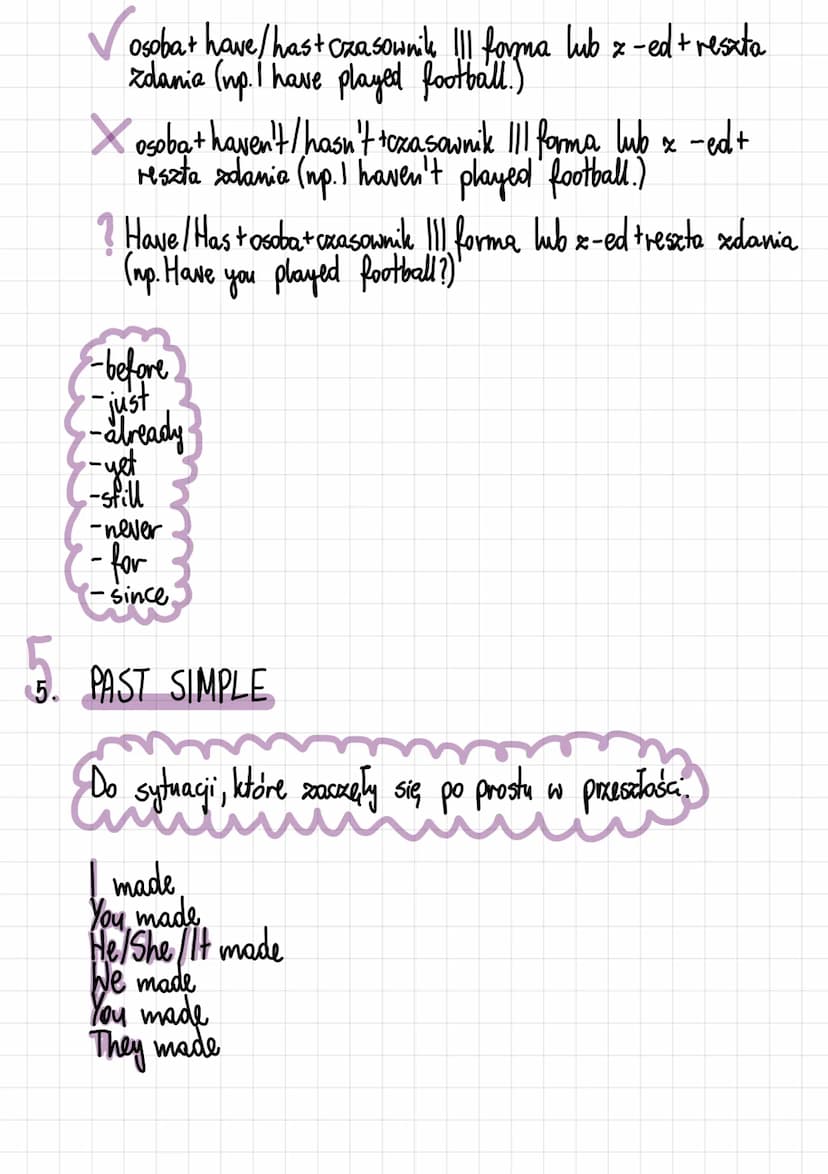 ✓ osoba + have/has + czasownik III forma lub z -ed + reszta
zdania (np. I have played football.)
X osoba + haven't/hasn't + czasownik III forma lub z -ed +
reszta zdania (np. I haven't played football.)
? Have/Has + osoba + czasownik III forma lub z -ed + reszta zdania
(np. Have you played football?)
-before
-just
-already
-yet
-still
-never
-for
-since
5.
5. PAST SIMPLE
Do sytuacji, które zaczęły się po prostu w przeszłości.
I made
You made
He/She/It made
We made
You made
They made